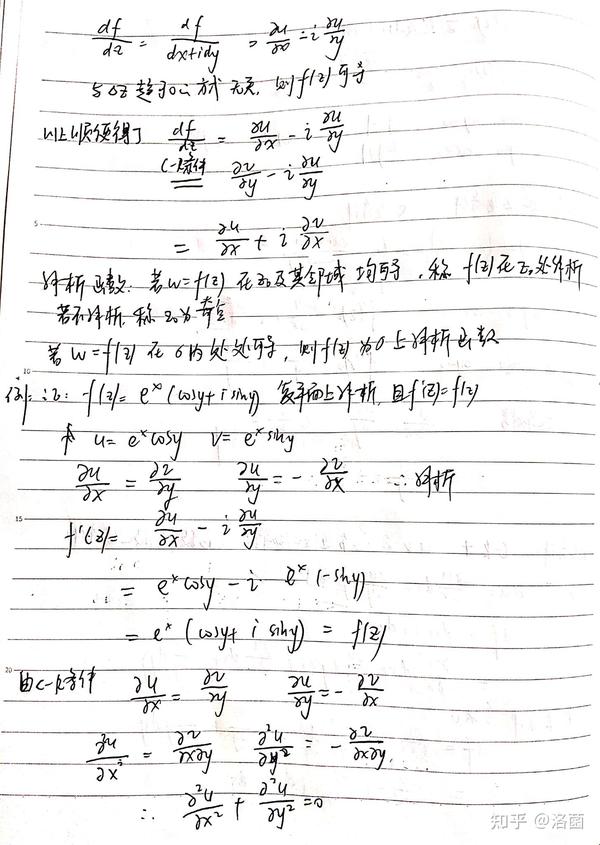 df/dz = df/(dx+idy) = ∂u/∂x - i ∂u/∂y
与Δz趋于0的方式无关, 则f(z)可导
以上顺便得了 df/dz = ∂u/∂x - i ∂u/∂y
C-R条件 ∂v/∂y - i ∂u/∂y
5
= ∂u/∂x + i ∂v/∂x
解析函数: 若w=f(z) 在z₀及其邻域 均可导, 称 f(z)在z₀处解析
若不解析, 称z₀为奇点
10
若 w=f(z) 在σ内处处可导, 则f(z)为σ上解析函数
例: 证: f(z)= eˣ(cosy+isiny) 复平面上解析, 且f'(z)=f(z)
u= eˣcosy v= eˣsiny
∂u/∂x = ∂v/∂y ∂u/∂y = -∂v/∂x ∴解析
15
f'(z)= ∂u/∂x - i ∂u/∂y
= eˣcosy - i eˣ(-siny)
= eˣ(cosy+ i siny) = f(z)
20
由C-R条件 ∂u/∂x = ∂v/∂y ∂u/∂y = -∂v/∂x
∂²u/∂x² = ∂²v/∂x∂y ∂²u/∂y² = -∂²v/∂x∂y
∴ ∂²u/∂x² + ∂²u/∂y² =0
知乎 @洛菌